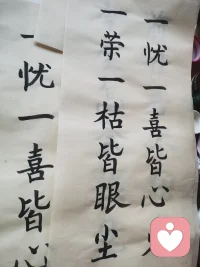 一忧一喜皆心
一荣一枯皆眼尘
一忧一喜皆心